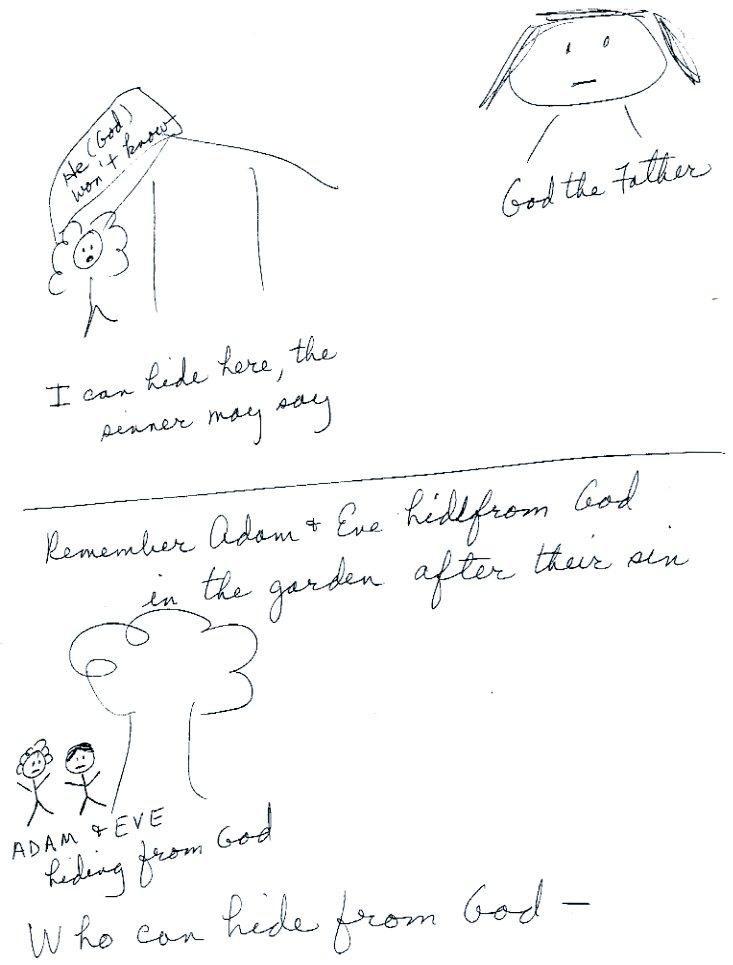 He (God)
won't know
God the Father
I can hide here, the
sinner may say
Remember Adam & Eve hid from God
in the garden after their sin
ADAM & EVE
hiding from God
Who can hide from God —